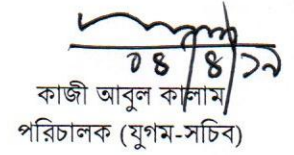 ০৪/৪/১৯
কাজী আবুল কালাম
পরিচালক (যুগ্ম-সচিব)